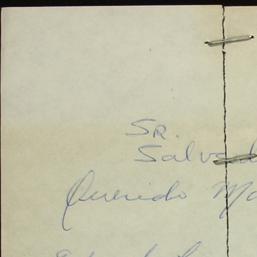 Sr.
Salvad
Querido Ma